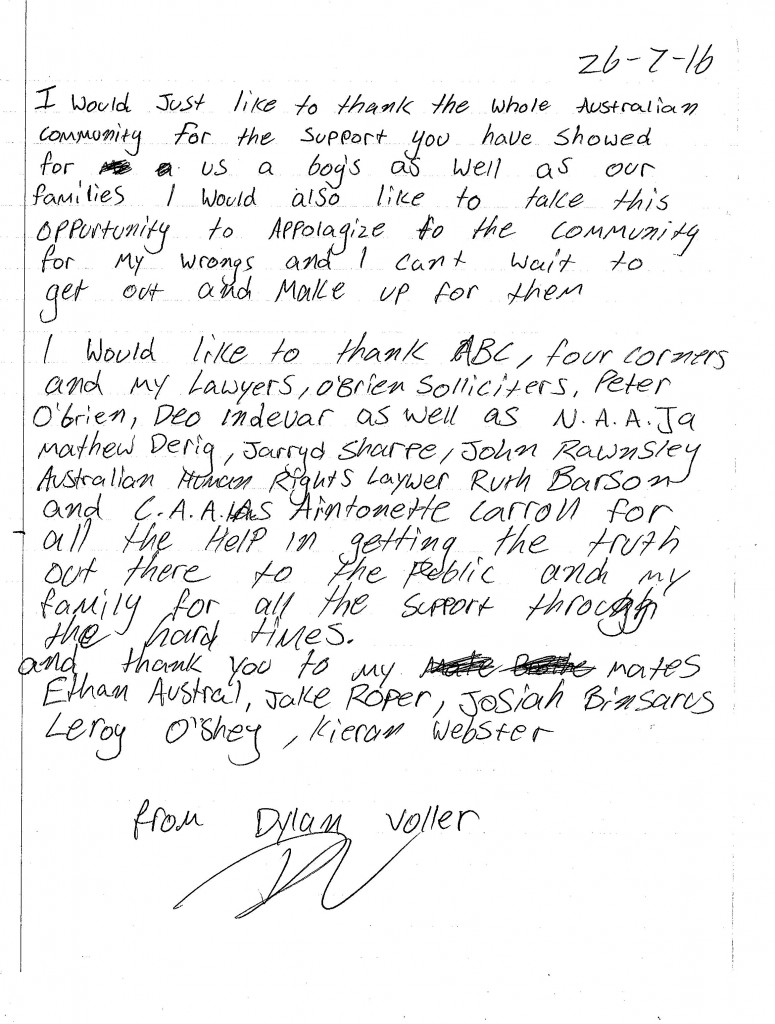 26-7-16
I Would Just like to thank the whole Australian
community for the support you have showed
for us a boys as well as our
families I Would also like to take this
opportunity to Appolagize to the community
for my wrongs and I cant wait to
get out and Make up for them
I Would like to thank ABC, four corners
and my Lawyers, O'Brien Solliciters, Peter
O'brien, Deo indevar as well as N.A.A.Ja
Mathew Derig, Jarryd Sharpe, John Rawnsley
Australian Human Rights Laywer Ruth Barson
and C.A.A.LAS Aintonette Carroll for
all the Help in getting the truth
out there to the Public and my
family for all the support through
the hard times.
and thank you to my mates
Ethan Austral, Jake Roper, Josiah Binsarus
Leroy O'Shey, Kieran Webster
from Dylan Voller